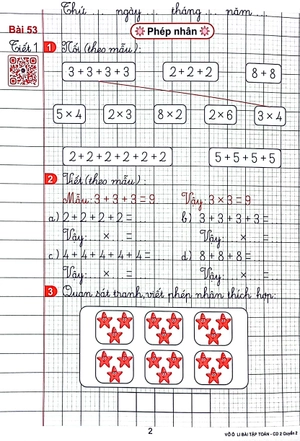 Thứ ... ngày ... tháng ... năm ...
Bài 53
Phép nhân
Tiết 1
1 Nối (theo mẫu):
3 + 3 + 3 + 3
2 + 2 + 2
8 + 8
5 × 4
2 × 3
8 × 2
2 × 6
3 × 4
2 + 2 + 2 + 2 + 2 + 2
5 + 5 + 5 + 5
2 Viết (theo mẫu):
Mẫu: 3 + 3 + 3 = 9 Vậy: 3 × 3 = 9
a) 2 + 2 + 2 + 2 = b) 3 + 3 + 3 + 3 =
Vậy: × = Vậy: × =
c) 4 + 4 + 4 + 4 + 4 = d) 8 + 8 + 8 =
Vậy: × = Vậy: × =
3 Quan sát tranh, viết phép nhân thích hợp:
2
VỞ Ô LI BÀI TẬP TOÁN - CD 2 Quyển 2